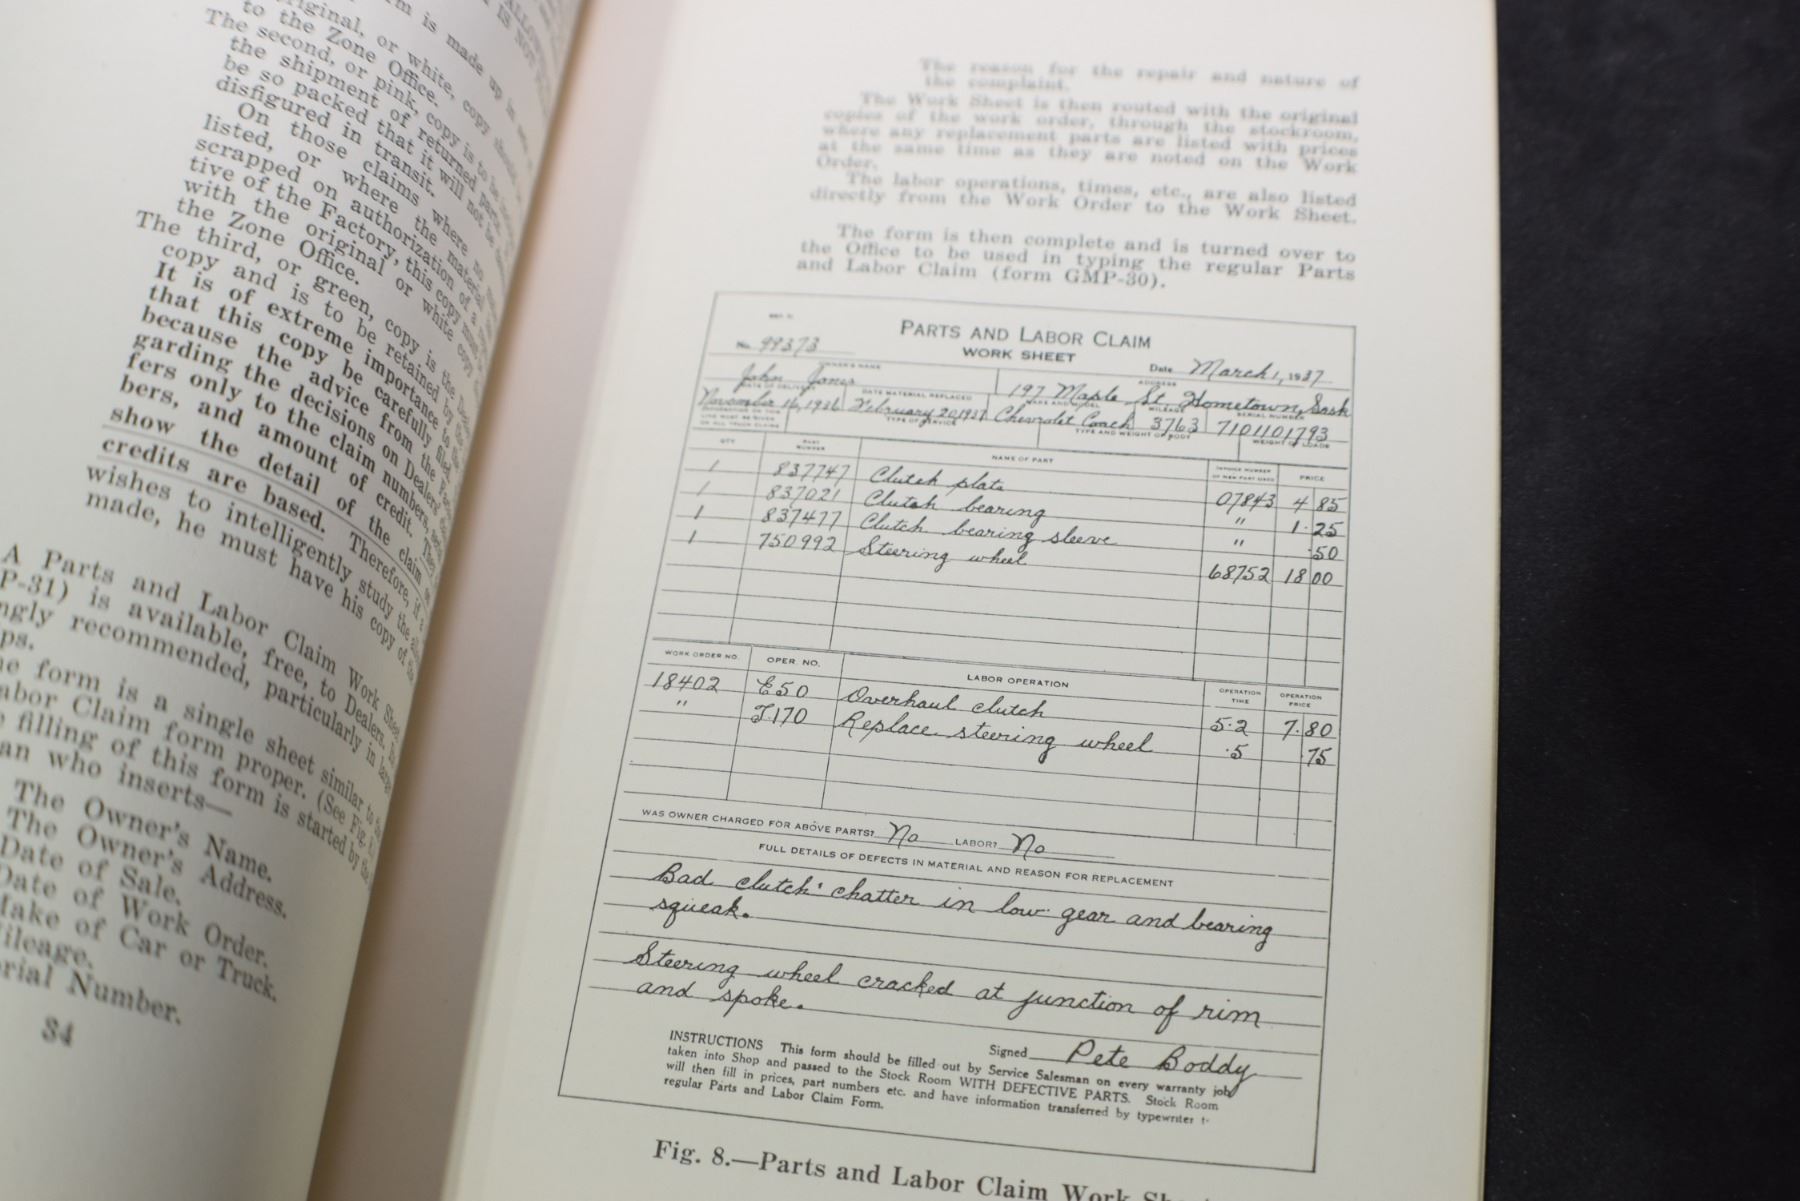 rm is made up in
riginal, or white, copy should
to the Zone Office.
The second, or pink, copy is to be
the shipment of returned parts.
be so packed that it will not be
disfigured in transit.
On those claims where no
listed, or where the material
scrapped on authorization of a
tive of the Factory, this copy must
with the original or white copy
the Zone Office.
The third, or green, copy is the
copy and is to be retained by the
It is of extreme importance to
that this copy be carefully filed
because the advice from the
garding the decisions on Dealers'
fers only to the claim numbers,
bers, and amount of credit. They
show the detail of the claim on
credits are based. Therefore, if a
wishes to intelligently study the
made, he must have his copy of the
A Parts and Labor Claim Work Sheet
P-31) is available, free, to Dealers.
ngly recommended, particularly in large
ps.
he form is a single sheet similar to the
abor Claim form proper. (See Fig.
filling of this form is started by the
an who inserts—
The Owner's Name.
The Owner's Address.
Date of Sale.
Date of Work Order.
Make of Car or Truck.
Mileage.
erial Number.
34
The reason for the repair and nature of
the complaint.
The Work Sheet is then routed with the original
copies of the work order, through the stockroom,
where any replacement parts are listed with prices
at the same time as they are noted on the Work
Order.
The labor operations, times, etc., are also listed
directly from the Work Order to the Work Sheet.
The form is then complete and is turned over to
the Office to be used in typing the regular Parts
and Labor Claim (form GMP-30).
PARTS AND LABOR CLAIM
WORK SHEET
No. 99373 Date March 1, 1937
OWNER'S NAME ADDRESS
John Jones 197 Maple St. Hometown, Sask
DATE OF DELIVERY DATE MATERIAL REPLACED MAKE AND MODEL MILEAGE SERIAL NUMBER
November 16, 1936 February 20, 1937 Chevrolet Coach 3763 7101101793
TYPE OF SERVICE TYPE AND WEIGHT OF BODY WEIGHT OF LOADS
QTY PART NUMBER NAME OF PART INVOICE NUMBER OF NEW PART USED PRICE
1 837747 Clutch plate 07843 4 85
1 837021 Clutch bearing " 1.25
1 837477 Clutch bearing sleeve " .50
1 750992 Steering wheel 68752 18 00
WORK ORDER NO. OPER. NO. LABOR OPERATION OPERATION TIME OPERATION PRICE
18402 E50 Overhaul clutch 5.2 7.80
" J170 Replace steering wheel .5 .75
WAS OWNER CHARGED FOR ABOVE PARTS? No LABOR? No
FULL DETAILS OF DEFECTS IN MATERIAL AND REASON FOR REPLACEMENT
Bad clutch chatter in low gear and bearing
squeak.
Steering wheel cracked at junction of rim
and spoke.
Signed Pete Boddy
INSTRUCTIONS This form should be filled out by Service Salesman on every warranty job
taken into Shop and passed to the Stock Room WITH DEFECTIVE PARTS. Stock Room
will then fill in prices, part numbers etc. and have information transferred by typewriter t
regular Parts and Labor Claim Form.
Fig. 8.—Parts and Labor Claim Work Sheet